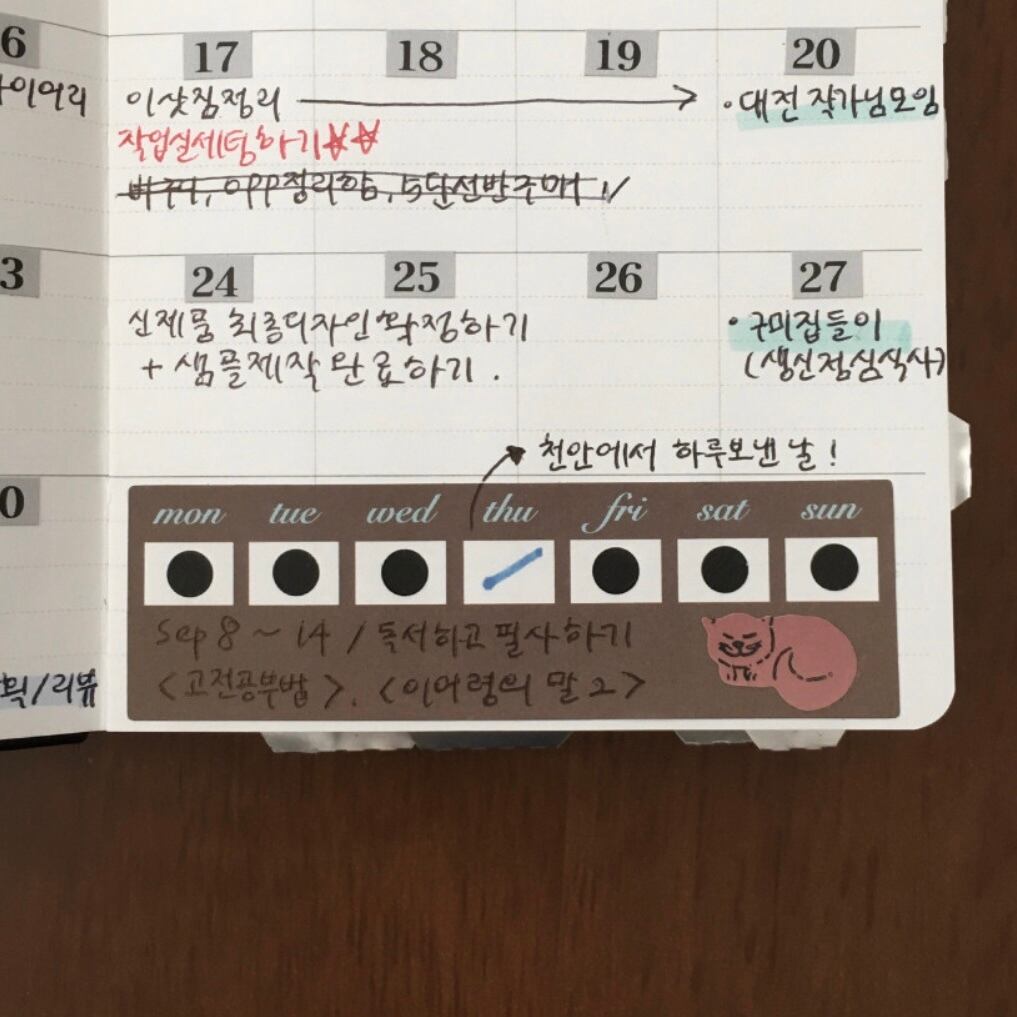 6 17 18 19 20
이어리 이삿짐정리 → ·대전 작가님모임
작업실세팅하기
, OPP정리함, 5단선반구매
3 24 25 26 27
신제품 최종디자인 확정하기 ·구미집들이
+ 샘플제작 완료하기. (생신점심식사)
천안에서 하루보낸 날!
0 mon tue wed thu fri sat sun
Sep 8 ~ 14 / 독서하고 필사하기
/리뷰 <고전공부법>. <이어령의 말 2>